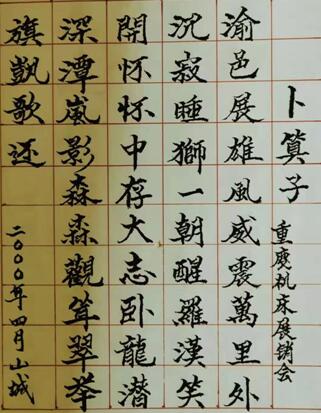 卜算子
重庆机床展销会
渝邑展雄風威震萬里外
沉寂睡獅一朝醒羅漢笑
開怀怀中存大志卧龍潜
深潭嵐影森森觀聳翠举
旗凱歌还
二000年四月山城